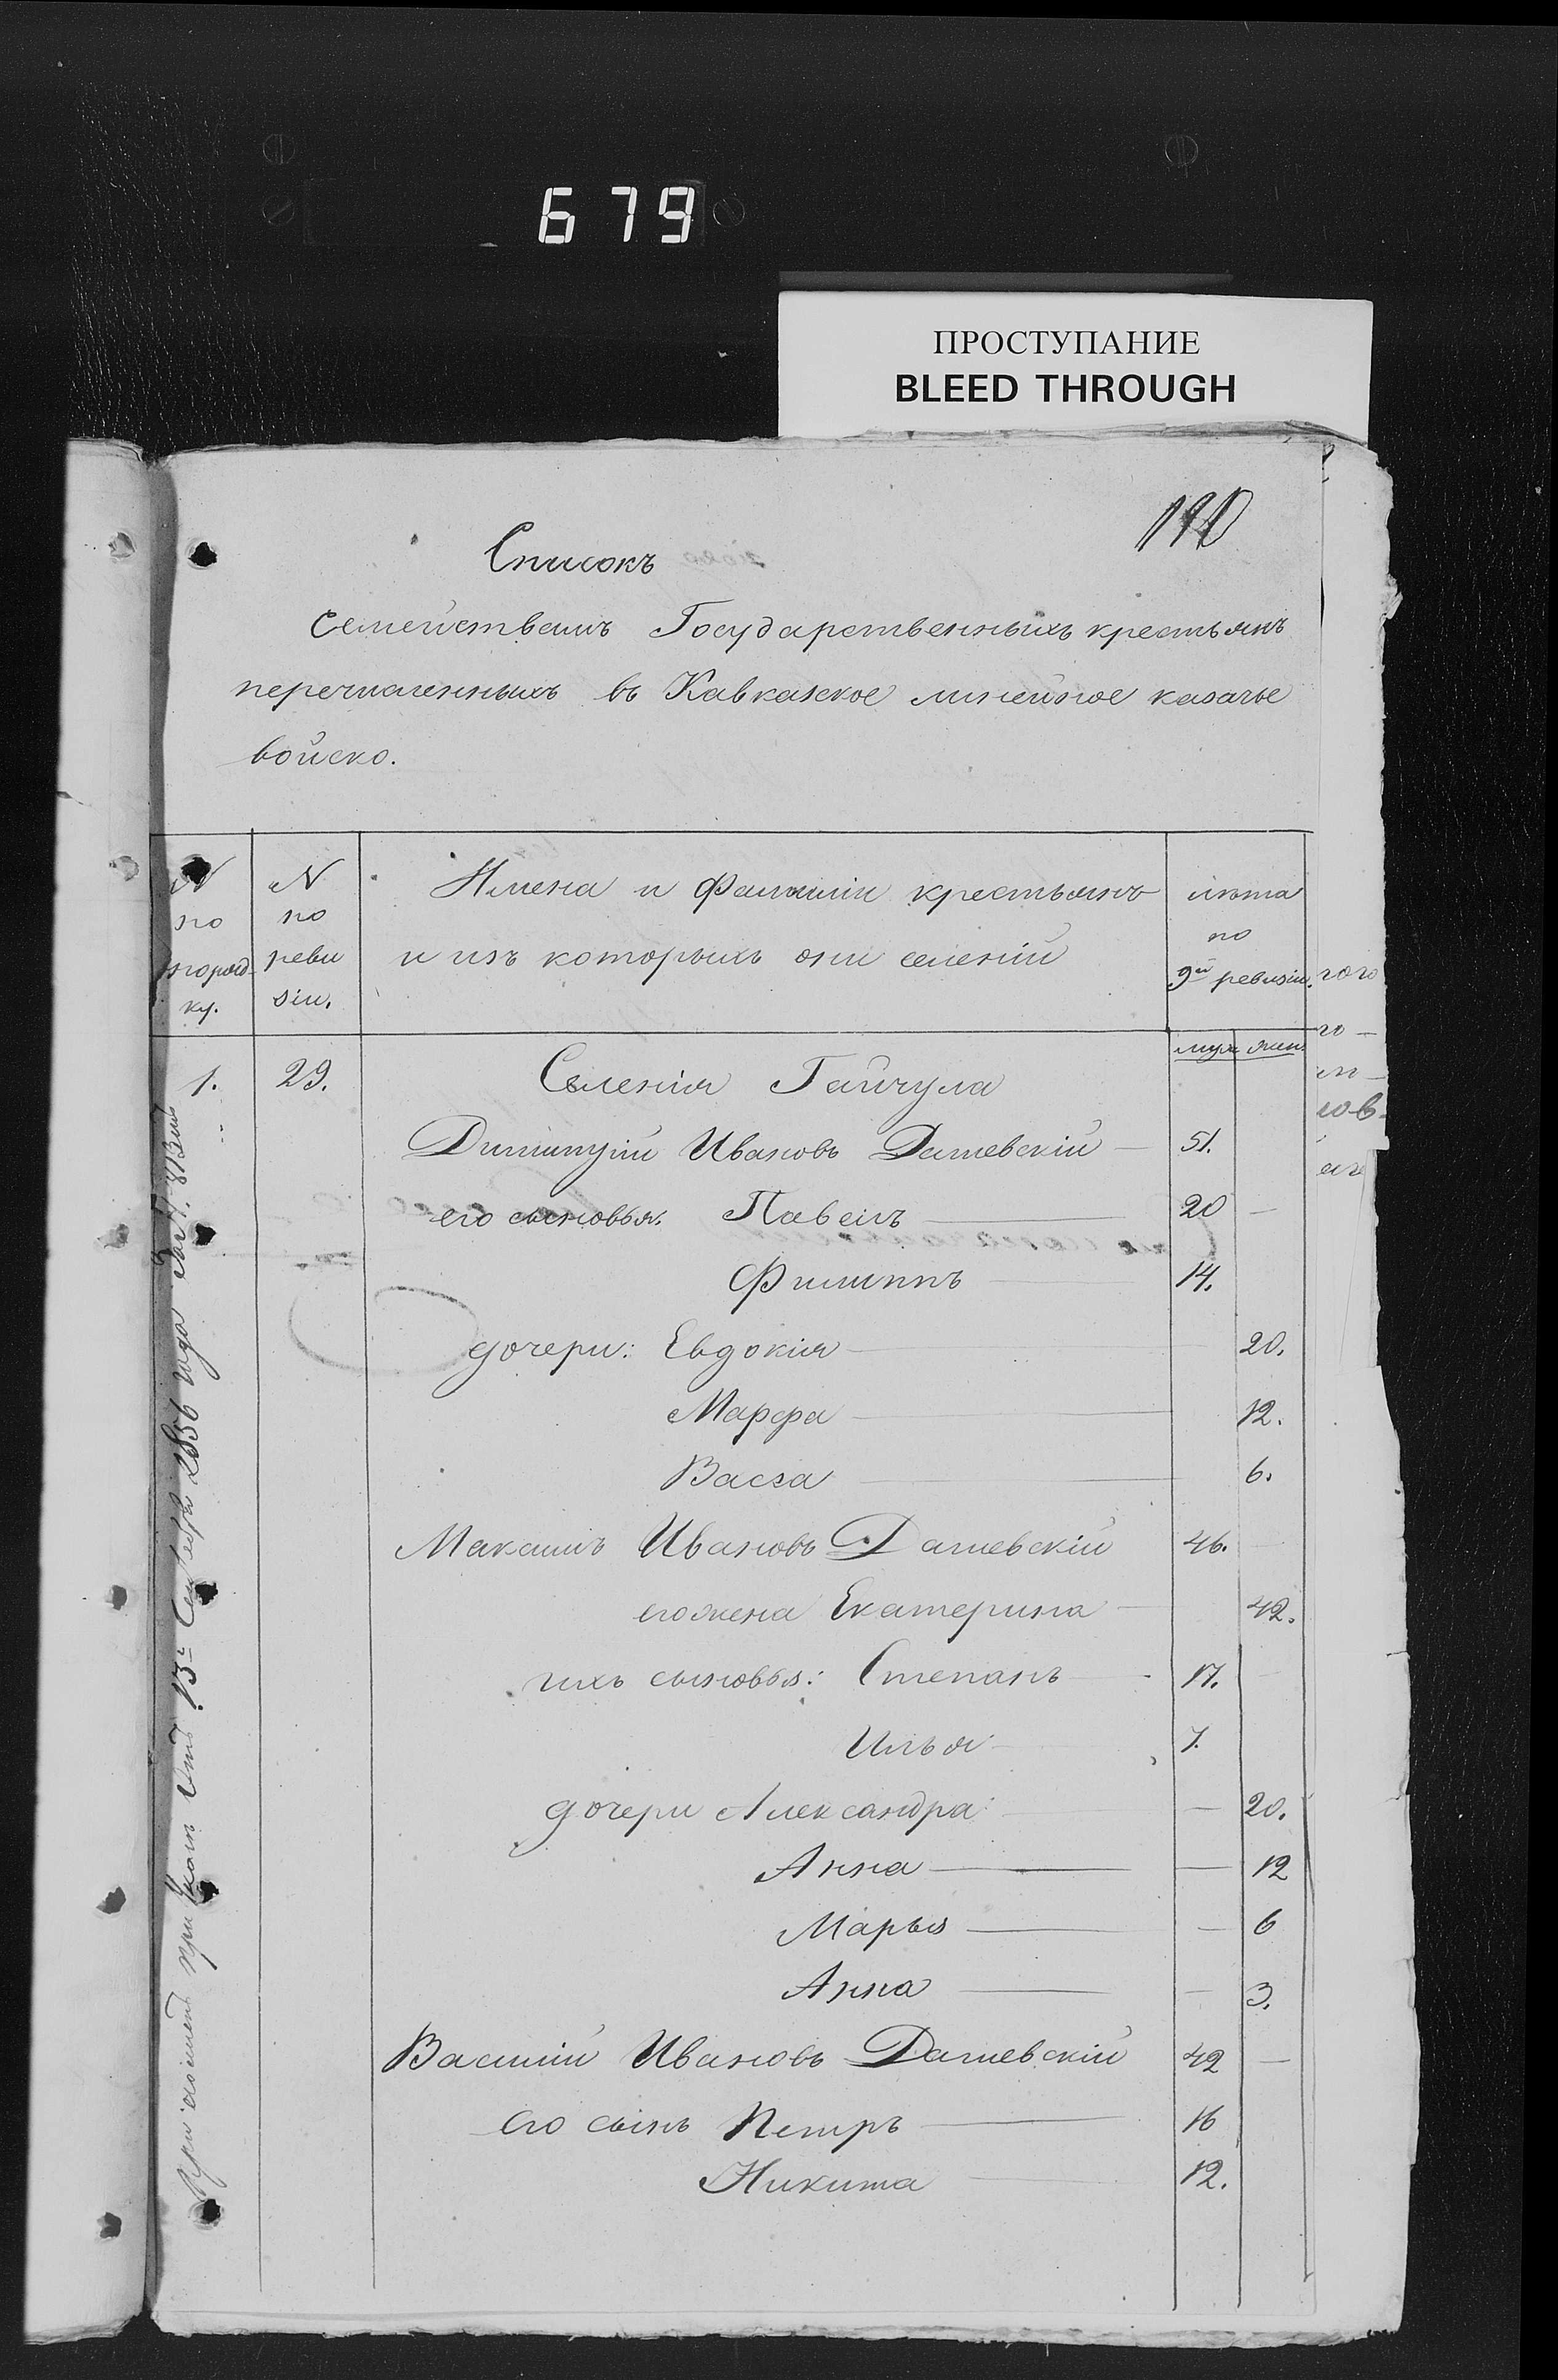 679
ПРОСТУПАНИЕ
BLEED THROUGH
190
Списокъ
Семействамъ Государственныхъ крестьянъ
перечисленныхъ въ Кавказское линейное казачье
войско.
N по порядку.
N по ревизіи.
Имена и Фамиліи крестьянъ
и изъ которыхъ они селеній
лѣта по 9й ревизіи.
муж жен.
1. 29. Селенія Гайчула
Димитрій Ивановъ Дашевскій 51.
его сыновья. Павелъ 20
Филиппъ 14.
дочери: Евдокія 20.
Марфа 12.
Васса 6.
Максимъ Ивановъ Дашевскій 46.
его жена Екатерина 42.
ихъ сыновья: Степанъ 17.
Илья 7.
дочери Александра 20.
Анна 12
Марья 6
Анна 3.
Василій Ивановъ Дашевскій 42
его сынъ Петръ 16
Никита 12.
при отъ 13го Сентября 1856 года